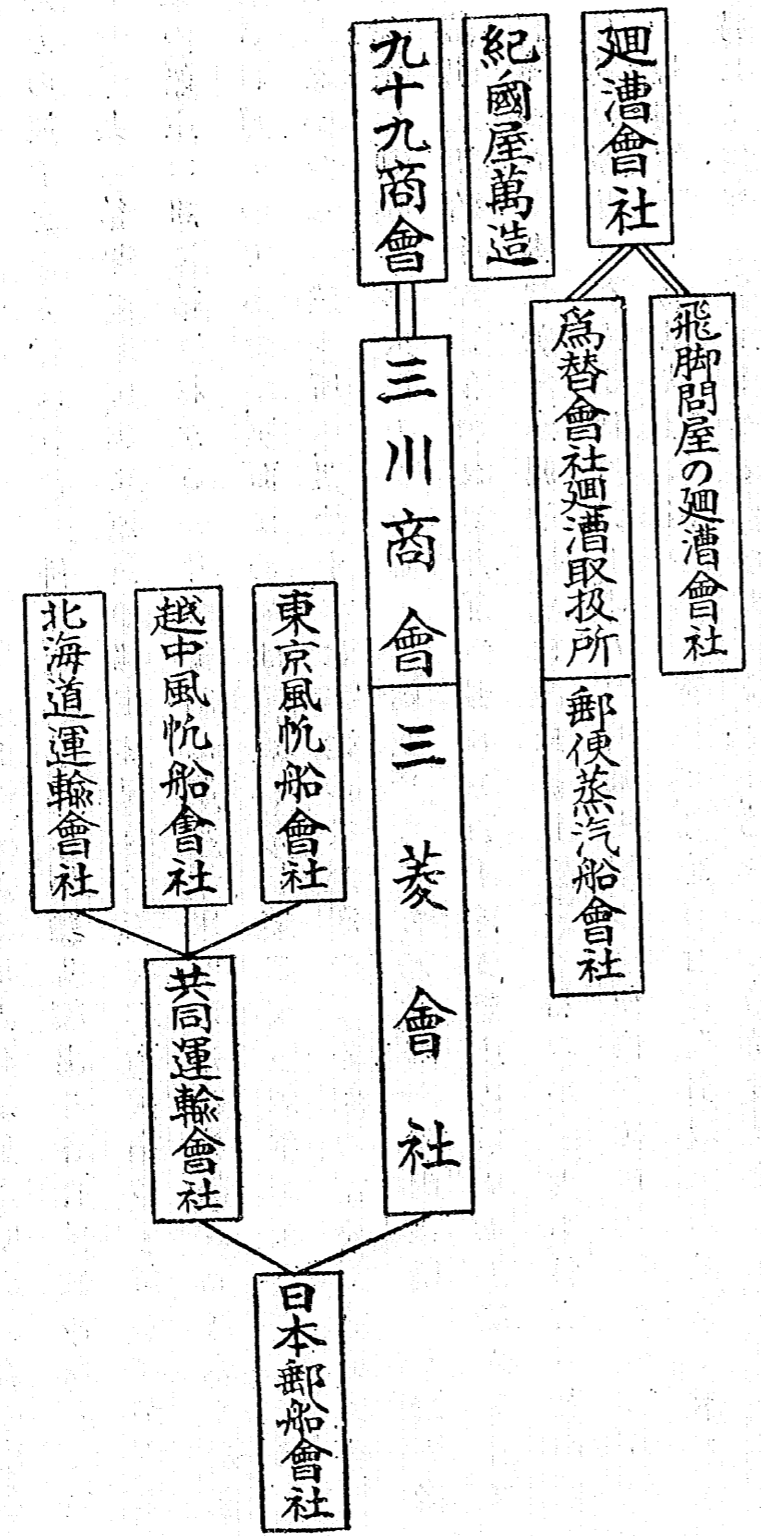 廻漕會社
飛脚問屋の廻漕會社
爲替會社廻漕取扱所
郵便蒸汽船會社
紀國屋萬造
九十九商會
三川商會
三菱會社
東京風帆船會社
越中風帆船會社
北海道運輸會社
共同運輸會社
日本郵船會社